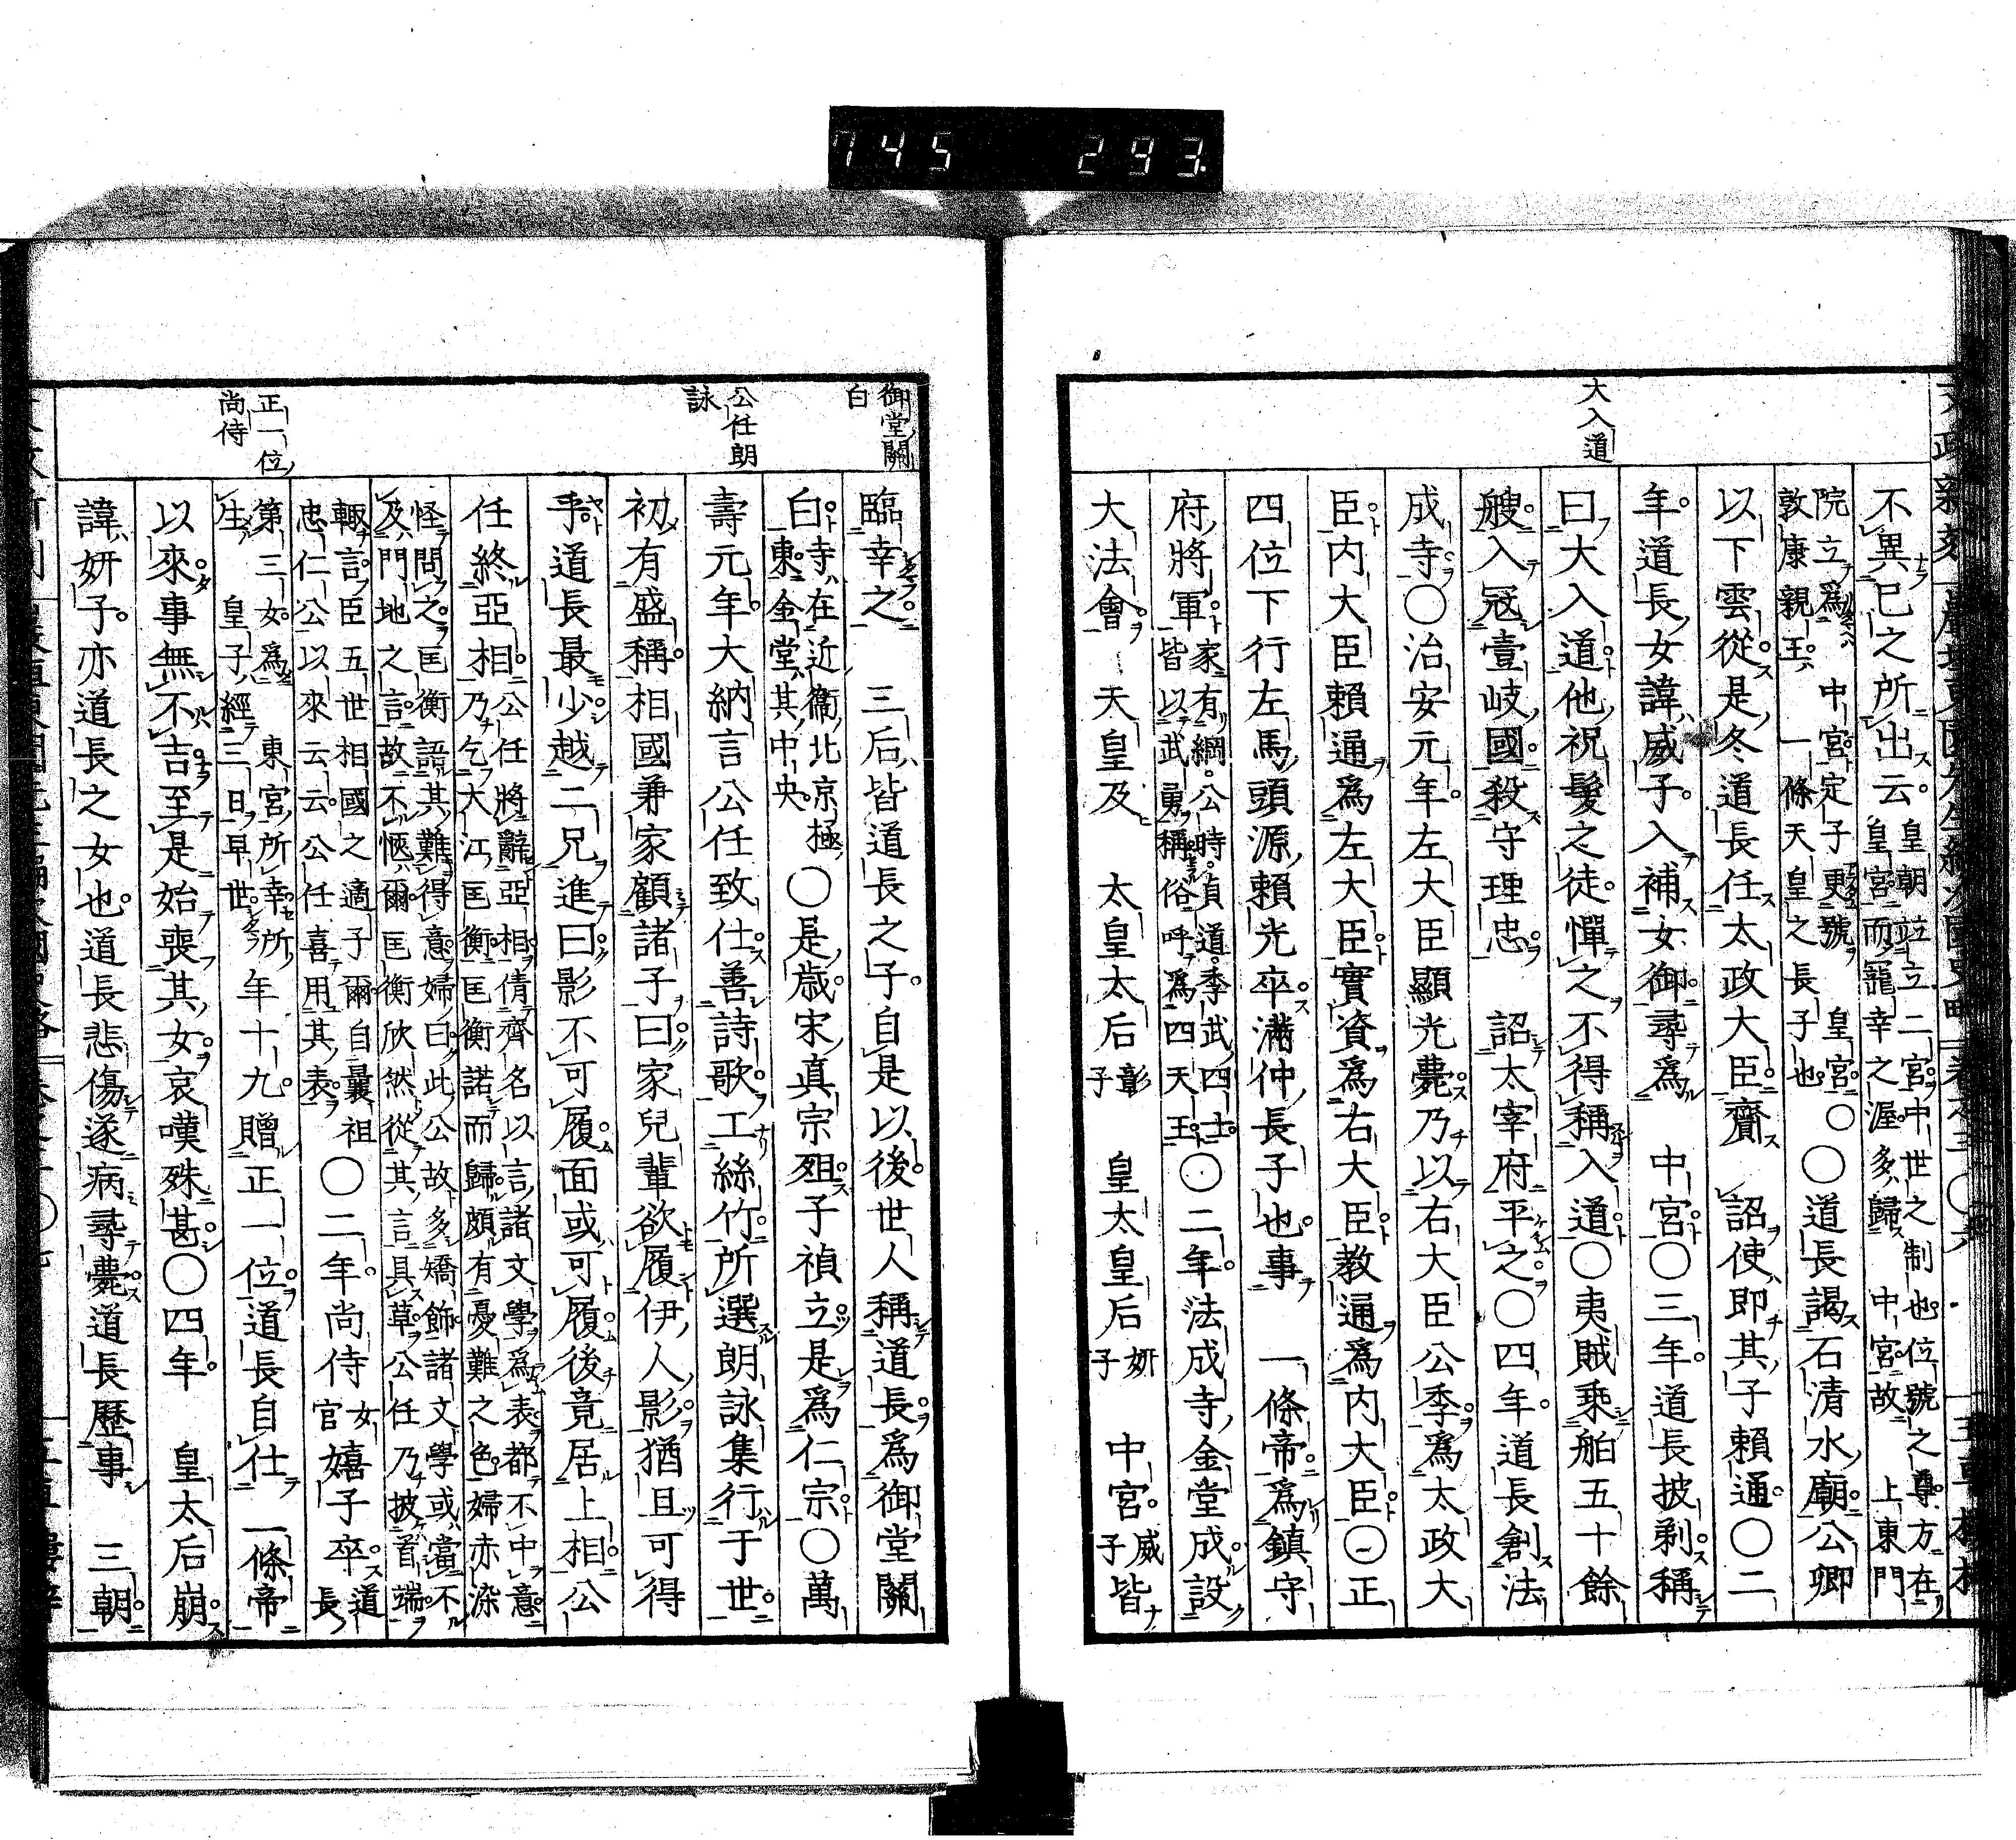 745 293
大入道
不異已之所出云皇朝竝立二宮中世之制也位號之尊方在
皇宮而寵幸之渥多歸中宮故上東門
院立爲中宮定子更號皇宮○
敦康親王一條天皇之長子也
○道長謁石清水廟公卿
以下雲從是冬道長任太政大臣齎詔使即其子賴通○二
年道長女諱威子入補女御尋爲中宮○三年道長披剃稱
曰大入道他祝髮之徒憚之不得稱入道○夷賊乘舶五十餘
艘入冦壹岐國殺守理忠詔太宰府平之○四年道長創法
成寺○治安元年左大臣顯光薨乃以右大臣公季爲太政大
臣內大臣賴通爲左大臣實資爲右大臣教通爲內大臣○正
四位下行左馬頭源賴光卒滿仲長子也事一條帝爲鎮守
府將軍家有綱公時貞道季武四士
皆以武勇稱俗呼爲四天王
○二年法成寺金堂成設
大法會天皇及太皇太后彰子皇太皇后妍子中宮威子皆
御堂關白
公任朗詠
正一位尚侍
臨幸之三后皆道長之子自是以後世人稱道長爲御堂關
白寺在近衞北京極
東金堂其中央
○是歲宋真宗殂子禎立是爲仁宗○萬
壽元年大納言公任致仕善詩歌工絲竹所選朗詠集行于世
初有盛稱相國兼家顧諸子曰家兒輩欲履伊人影猶且可得
乎道長最少越二兄進曰影不可履面或可履後竟居上相公
任終亞相公任將辭亞相倩齊名以言諸文學爲表都不中意
乃乞大江匡衡匡衡諾而歸頗有憂難之色婦赤染
怪問之匡衡語其難得意婦曰此公故多矯飾諸文學或當不
及門地之言故不愜爾匡衡欣然從其言具草公任乃披首端
輙言臣五世相國之適子爾自曩祖
忠仁公以來云云公任喜用其表
○二年尚侍女官嬉子卒道長
第三女爲東宮所幸所
生皇子經三日早世
年十九贈正一位道長自仕一條帝
以來事無不吉至是始喪其女哀嘆殊甚○四年皇太后崩
諱妍子亦道長之女也道長悲傷遂病尋薨道長歷事三朝